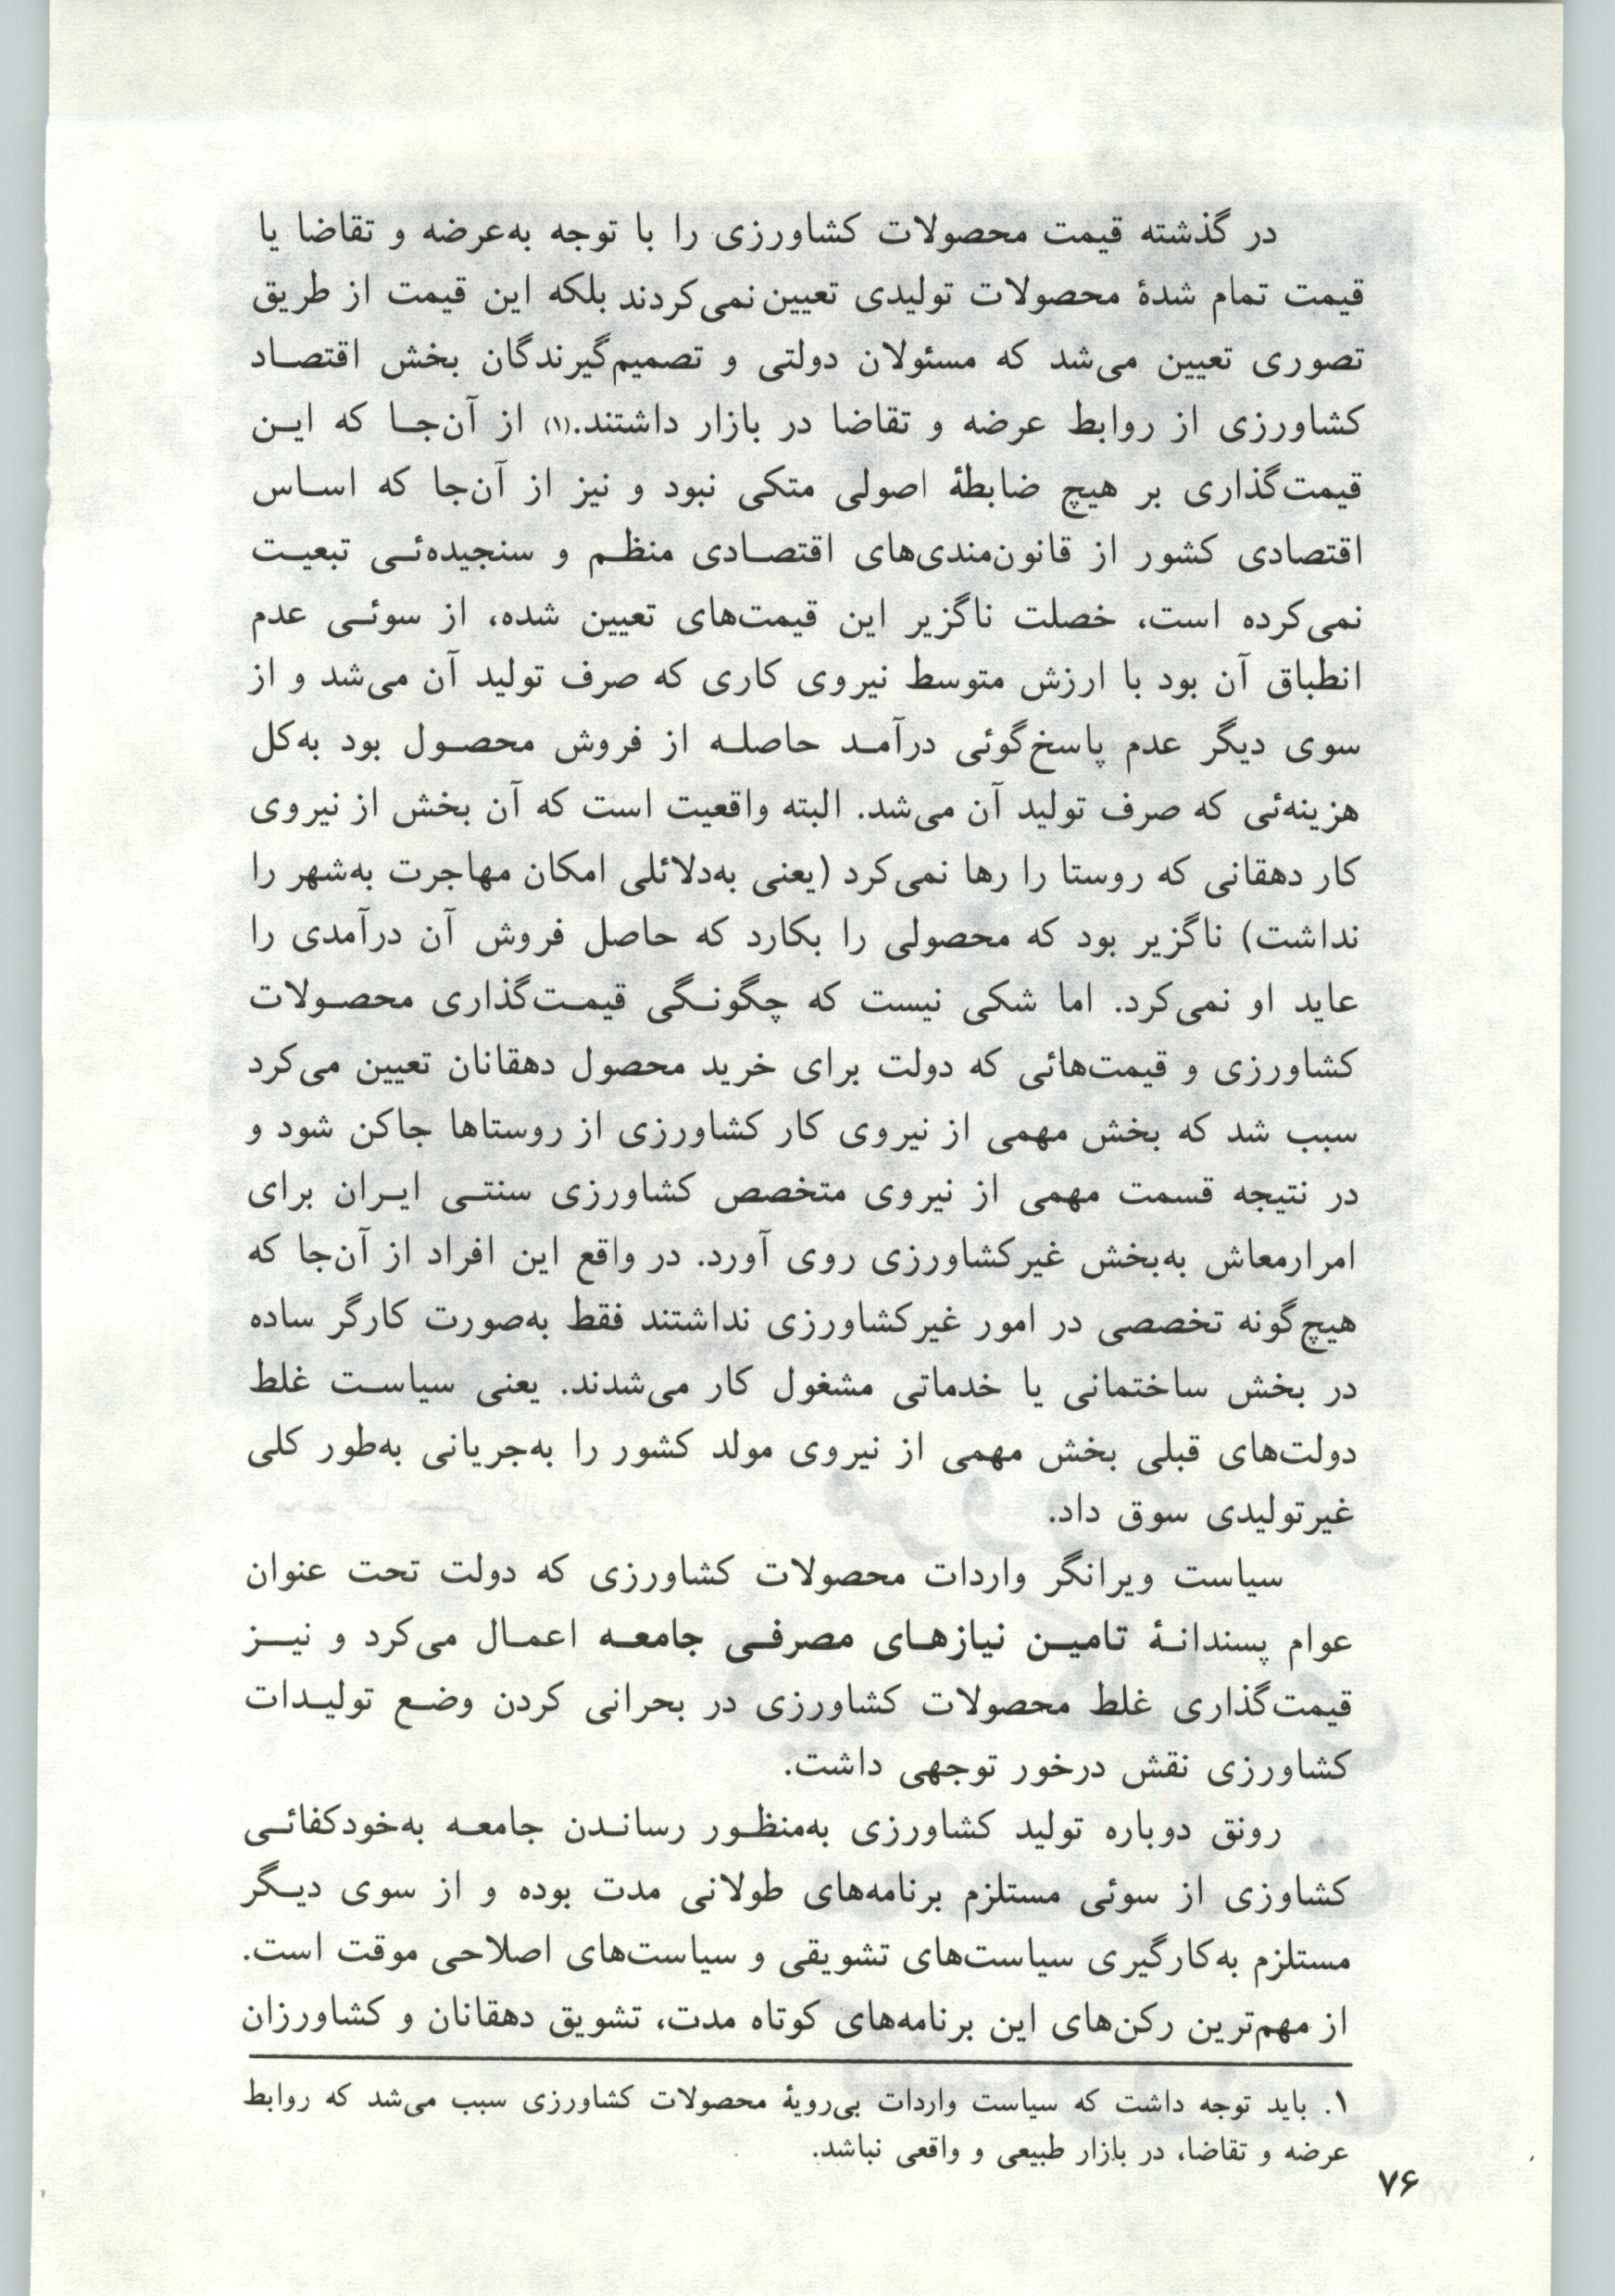 در گذشته قیمت محصولات کشاورزی را با توجه به‌عرضه و تقاضا یا
قیمت تمام شدهٔ محصولات تولیدی تعیین نمی‌کردند بلکه این قیمت از طریق
تصوری تعیین می‌شد که مسئولان دولتی و تصمیم‌گیرندگان بخش اقتصاد
کشاورزی از روابط عرضه و تقاضا در بازار داشتند.(۱) از آن‌جا که این
قیمت‌گذاری بر هیچ ضابطهٔ اصولی متکی نبود و نیز از آن‌جا که اساس
اقتصادی کشور از قانون‌مندی‌های اقتصادی منظم و سنجیده‌ئی تبعیت
نمی‌کرده است، خصلت ناگزیر این قیمت‌های تعیین شده، از سوئی عدم
انطباق آن بود با ارزش متوسط نیروی کاری که صرف تولید آن می‌شد و از
سوی دیگر عدم پاسخ‌گوئی درآمد حاصله از فروش محصول بود به‌کل
هزینه‌ئی که صرف تولید آن می‌شد. البته واقعیت است که آن بخش از نیروی
کار دهقانی که روستا را رها نمی‌کرد (یعنی به‌دلائلی امکان مهاجرت به‌شهر را
نداشت) ناگزیر بود که محصولی را بکارد که حاصل فروش آن درآمدی را
عاید او نمی‌کرد. اما شکی نیست که چگونگی قیمت‌گذاری محصولات
کشاورزی و قیمت‌هائی که دولت برای خرید محصول دهقانان تعیین می‌کرد
سبب شد که بخش مهمی از نیروی کار کشاورزی از روستاها جاکن شود و
در نتیجه قسمت مهمی از نیروی متخصص کشاورزی سنتی ایران برای
امرارمعاش به‌بخش غیرکشاورزی روی آورد. در واقع این افراد از آن‌جا که
هیچ‌گونه تخصصی در امور غیرکشاورزی نداشتند فقط به‌صورت کارگر ساده
در بخش ساختمانی یا خدماتی مشغول کار می‌شدند. یعنی سیاست غلط
دولت‌های قبلی بخش مهمی از نیروی مولد کشور را به‌جریانی به‌طور کلی
غیرتولیدی سوق داد.
سیاست ویرانگر واردات محصولات کشاورزی که دولت تحت عنوان
عوام پسندانهٔ تامین نیازهای مصرفی جامعه اعمال می‌کرد و نیز
قیمت‌گذاری غلط محصولات کشاورزی در بحرانی کردن وضع تولیدات
کشاورزی نقش درخور توجهی داشت.
رونق دوباره تولید کشاورزی به‌منظور رساندن جامعه به‌خودکفائی
کشاوزی از سوئی مستلزم برنامه‌های طولانی مدت بوده و از سوی دیگر
مستلزم به‌کارگیری سیاست‌های تشویقی و سیاست‌های اصلاحی موقت است.
از مهم‌ترین رکن‌های این برنامه‌های کوتاه مدت، تشویق دهقانان و کشاورزان
۱. باید توجه داشت که سیاست واردات بی‌رویهٔ محصولات کشاورزی سبب می‌شد که روابط
عرضه و تقاضا، در بازار طبیعی و واقعی نباشد.
۷۶